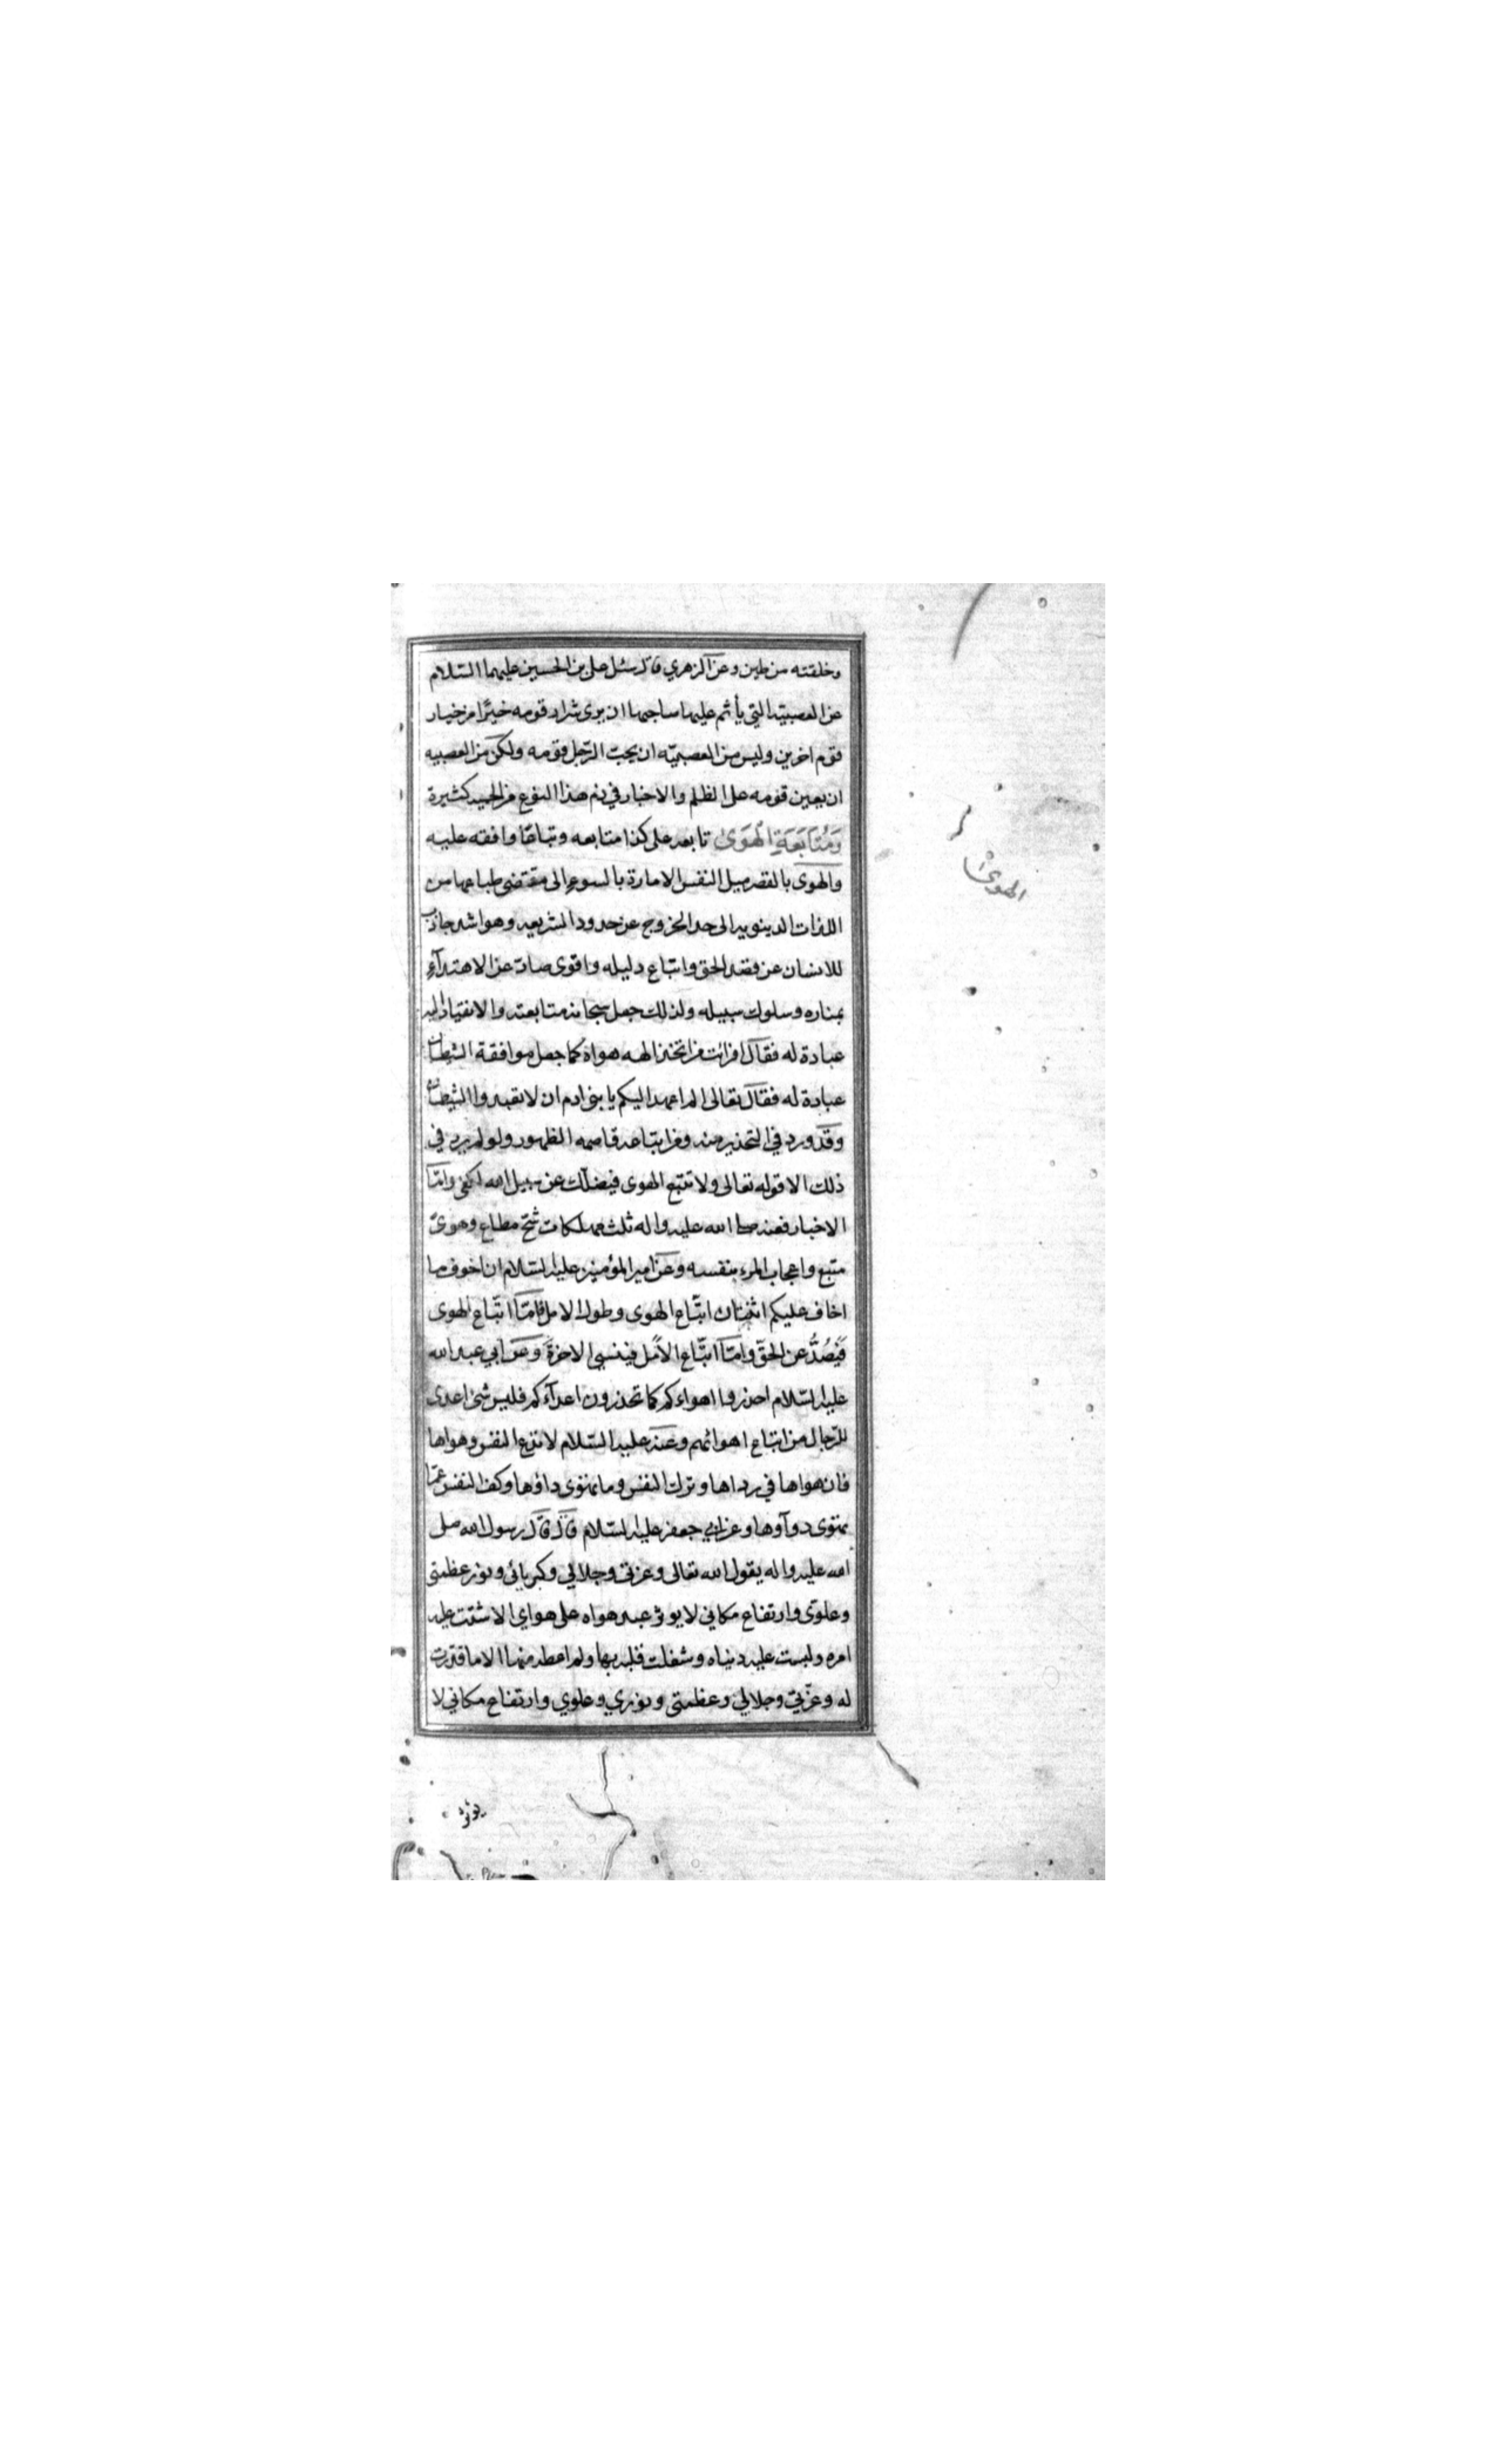 وخلقته من طين وعن الزهري قال سئل علي بن الحسين عليهما السّلام
عن العصبيّة التي يأثم عليها صاحبها ان يرى شرار قومه خيرًا من خيار
قوم اخرين وليس من العصبيّه ان يحبّ الرّجل قومه ولكن من العصبيه
ان يعين قومه على الظلم والاخبار في ذم هذا النوع من الحميه كثيرة
وَمُتَابَعَةِ الْهَوَىٰ تابعه على كذا متابعه وتباعًا وافقه عليه
والهوى بالقصر ميل النفس الامارة بالسوء الى مقتضى طباعها من
اللذات الدينويه الى حد الخروج عن حدود الشريعه وهو اشد جاذب
للانسان عن قصد الحق واتباع دليله واقوى صاد عن الاهتدآء
بمناره وسلوك سبيله ولذلك جعل سبحانه متابعته والانقياد اليه
عبادة له فقال افرائت من اتخذ الهه هواه كما جعل موافقة الشيطان
عبادة له فقال تعالى الم اعهد اليكم يا بني ادم ان لا تعبدوا الشيطان
وقد ورد في التحذير منه ومن اتباعه قاصمه الظهور ولو لم يرد في
ذلك الا قوله تعالى ولا تتبع الهوى فيضلّك عن سبيل الله لكفى وامّا
الاخبار فعنه صلى الله عليه واله ثلث مهلكات شحّ مطاع وهوىً
متبع واعجاب المرء بنفسه وعن امير المؤمنين عليه السّلام ان اخوف ما
اخاف عليكم اثنتان اتّباع الهوى وطول الامل فامّا اتّباع الهوى
فَيَصُدُّ عن الحقّ وامّا اتّباع الأمل فينسي الاخرة وعن ابي عبد الله
عليه السّلام احذروا اهواءكم كما تحذرون اعدآءكم فليس شئ اعدى
للرّجال من اتباع اهوائهم وعنه عليه السّلام لا تدع النفس وهواها
فان هواها في رداها وترك النفس وما تهوى داؤها وكف النفس عمّا
تهوى دوآؤها وعن ابي جعفر عليه السّلام قال قال رسول الله صلى
الله عليه واله يقول الله تعالى وعزتي وجلالي وكبريائي ونور عظمتي
وعلوّي وارتفاع مكاني لا يؤثر عبد هواه على هواي الا شتّت عليه
امره ولبست عليه دنياه وشغلت قلبه بها ولم اعطه منها الا ما قدّرت
له وعزّتي وجلالي وعظمتي ونوري وعلوي وارتفاع مكاني لا
يؤثر
الهوىٰ